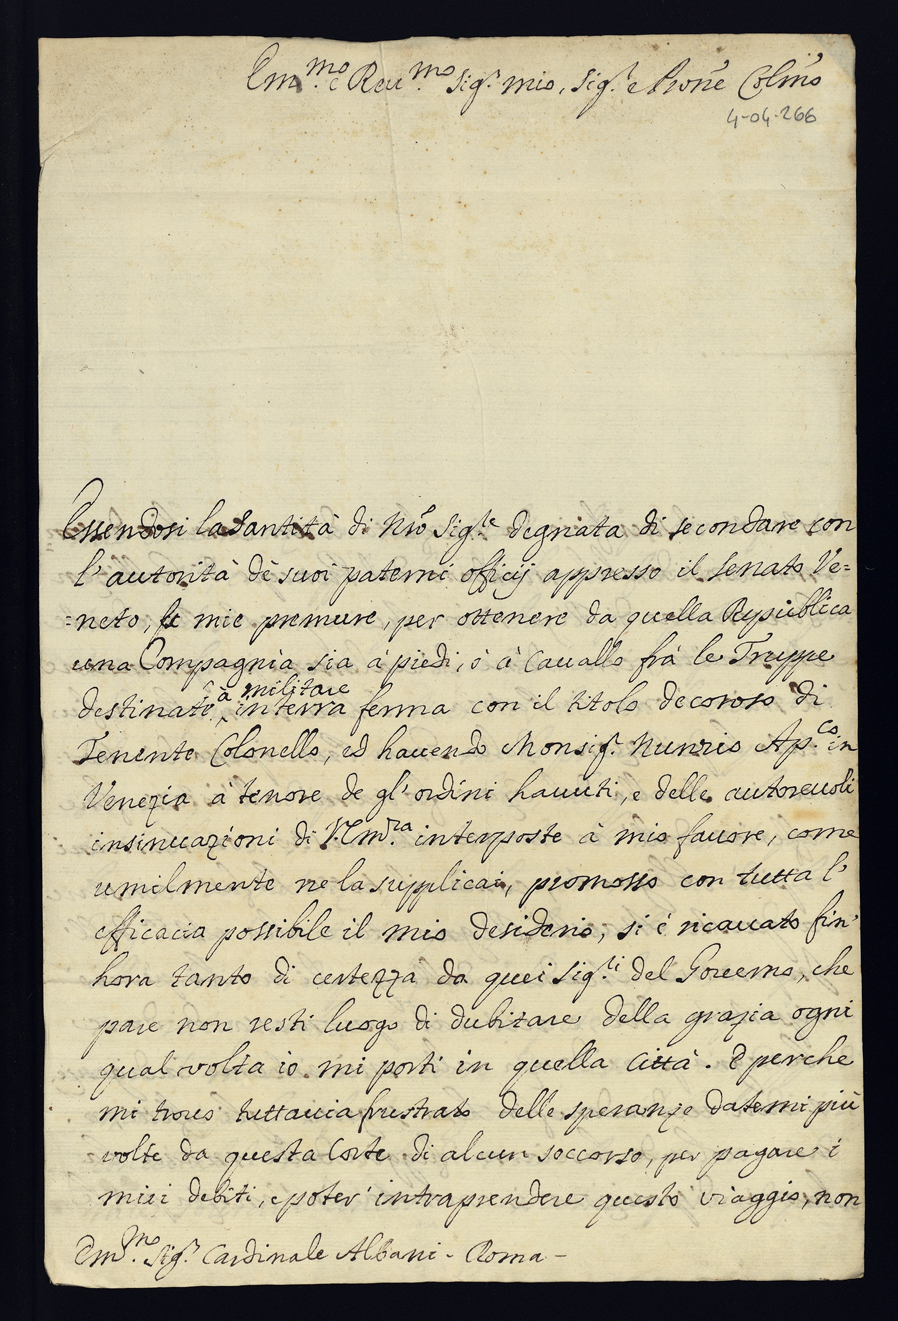 Em.mo e Reu.mo Sig.r mio, Sig.r e Prone Colmo
4-04-266
Essendosi la Santità di Nrō Sig.re degnata di secondare con
l'autorità de suoi paterni officij appresso il Senato Ve=
=neto, le mie premure, per ottenere da quella Republica
una Compagnia sia à piedi, ò à Cauallo frà le Truppe
à militare
destinate interra ferma con il titolo decoroso di
Tenente Colonello, ed hauendo Monsig.r Nunzio Ap.co in
Venezia à tenore de gl'ordini hauuti, e delle autoreuoli
insinuazioni di V. Em.ra interposte à mio fauore, come
umilmente ne la supplicai, promosso con tutta l'
efficacia possibile il mio desiderio, si è ricauato fin'
hora tanto di certezza da quei Sig.ri del Gouerno, che
pare non resti luogo di dubitare della grazia ogni
qual volta io mi porti in quella Città. E perche
mi trouo tuttauia frustrato delle speranze datemi più
volte da questa Corte di alcun soccorso, per pagare i
miei debiti, e poter' intraprendere questo viaggio, non
Em.mo Sig.r Cardinale Albani - Roma -